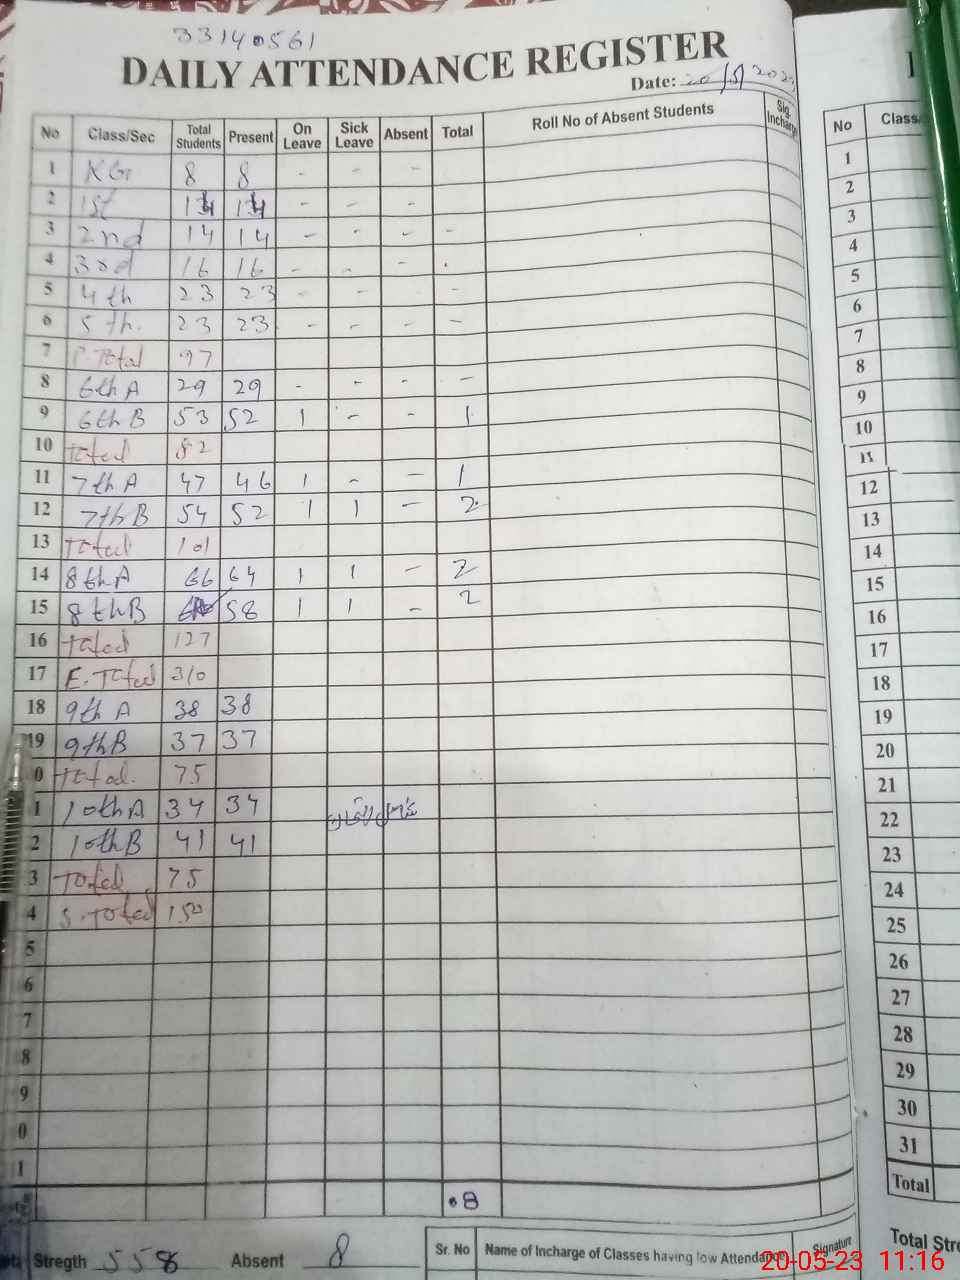 33140561
DAILY ATTENDANCE REGISTER
Date: 20/5/202
No Class/Sec Total Students Present On Leave Sick Leave Absent Total Roll No of Absent Students Sig. Incharge
1 KG 8 8 - - -
2 1st 14 14 - - -
3 2nd 14 14 - - - -
4 3rd 16 16 - - - .
5 4th 23 23 - - - -
6 5th. 23 23 - - - -
7 P.Total 97
8 6th A 29 29 - - - -
9 6th B 53 52 1 - - 1
10 Total 82
11 7th A 47 46 1 - - 1
12 7th B 54 52 1 1 - 2
13 Total 101
14 8th A 66 64 1 1 - 2
15 8th B 58 1 1 - 2
16 Total 127
17 E.Total 310
18 9th A 38 38
19 9th B 37 37
0 Total. 75
1 10th A 34 34
2 10th B 41 41
3 Total 75
4 S.Total 150
5
6
7
8
9
0
1
.8
Stregth 558 Absent 8
Sr. No Name of Incharge of Classes having low Attendance Signature
No Class
1
2
3
4
5
6
7
8
9
10
11
12
13
14
15
16
17
18
19
20
21
22
23
24
25
26
27
28
29
30
31
Total
Total Stre
20-05-23 11:16